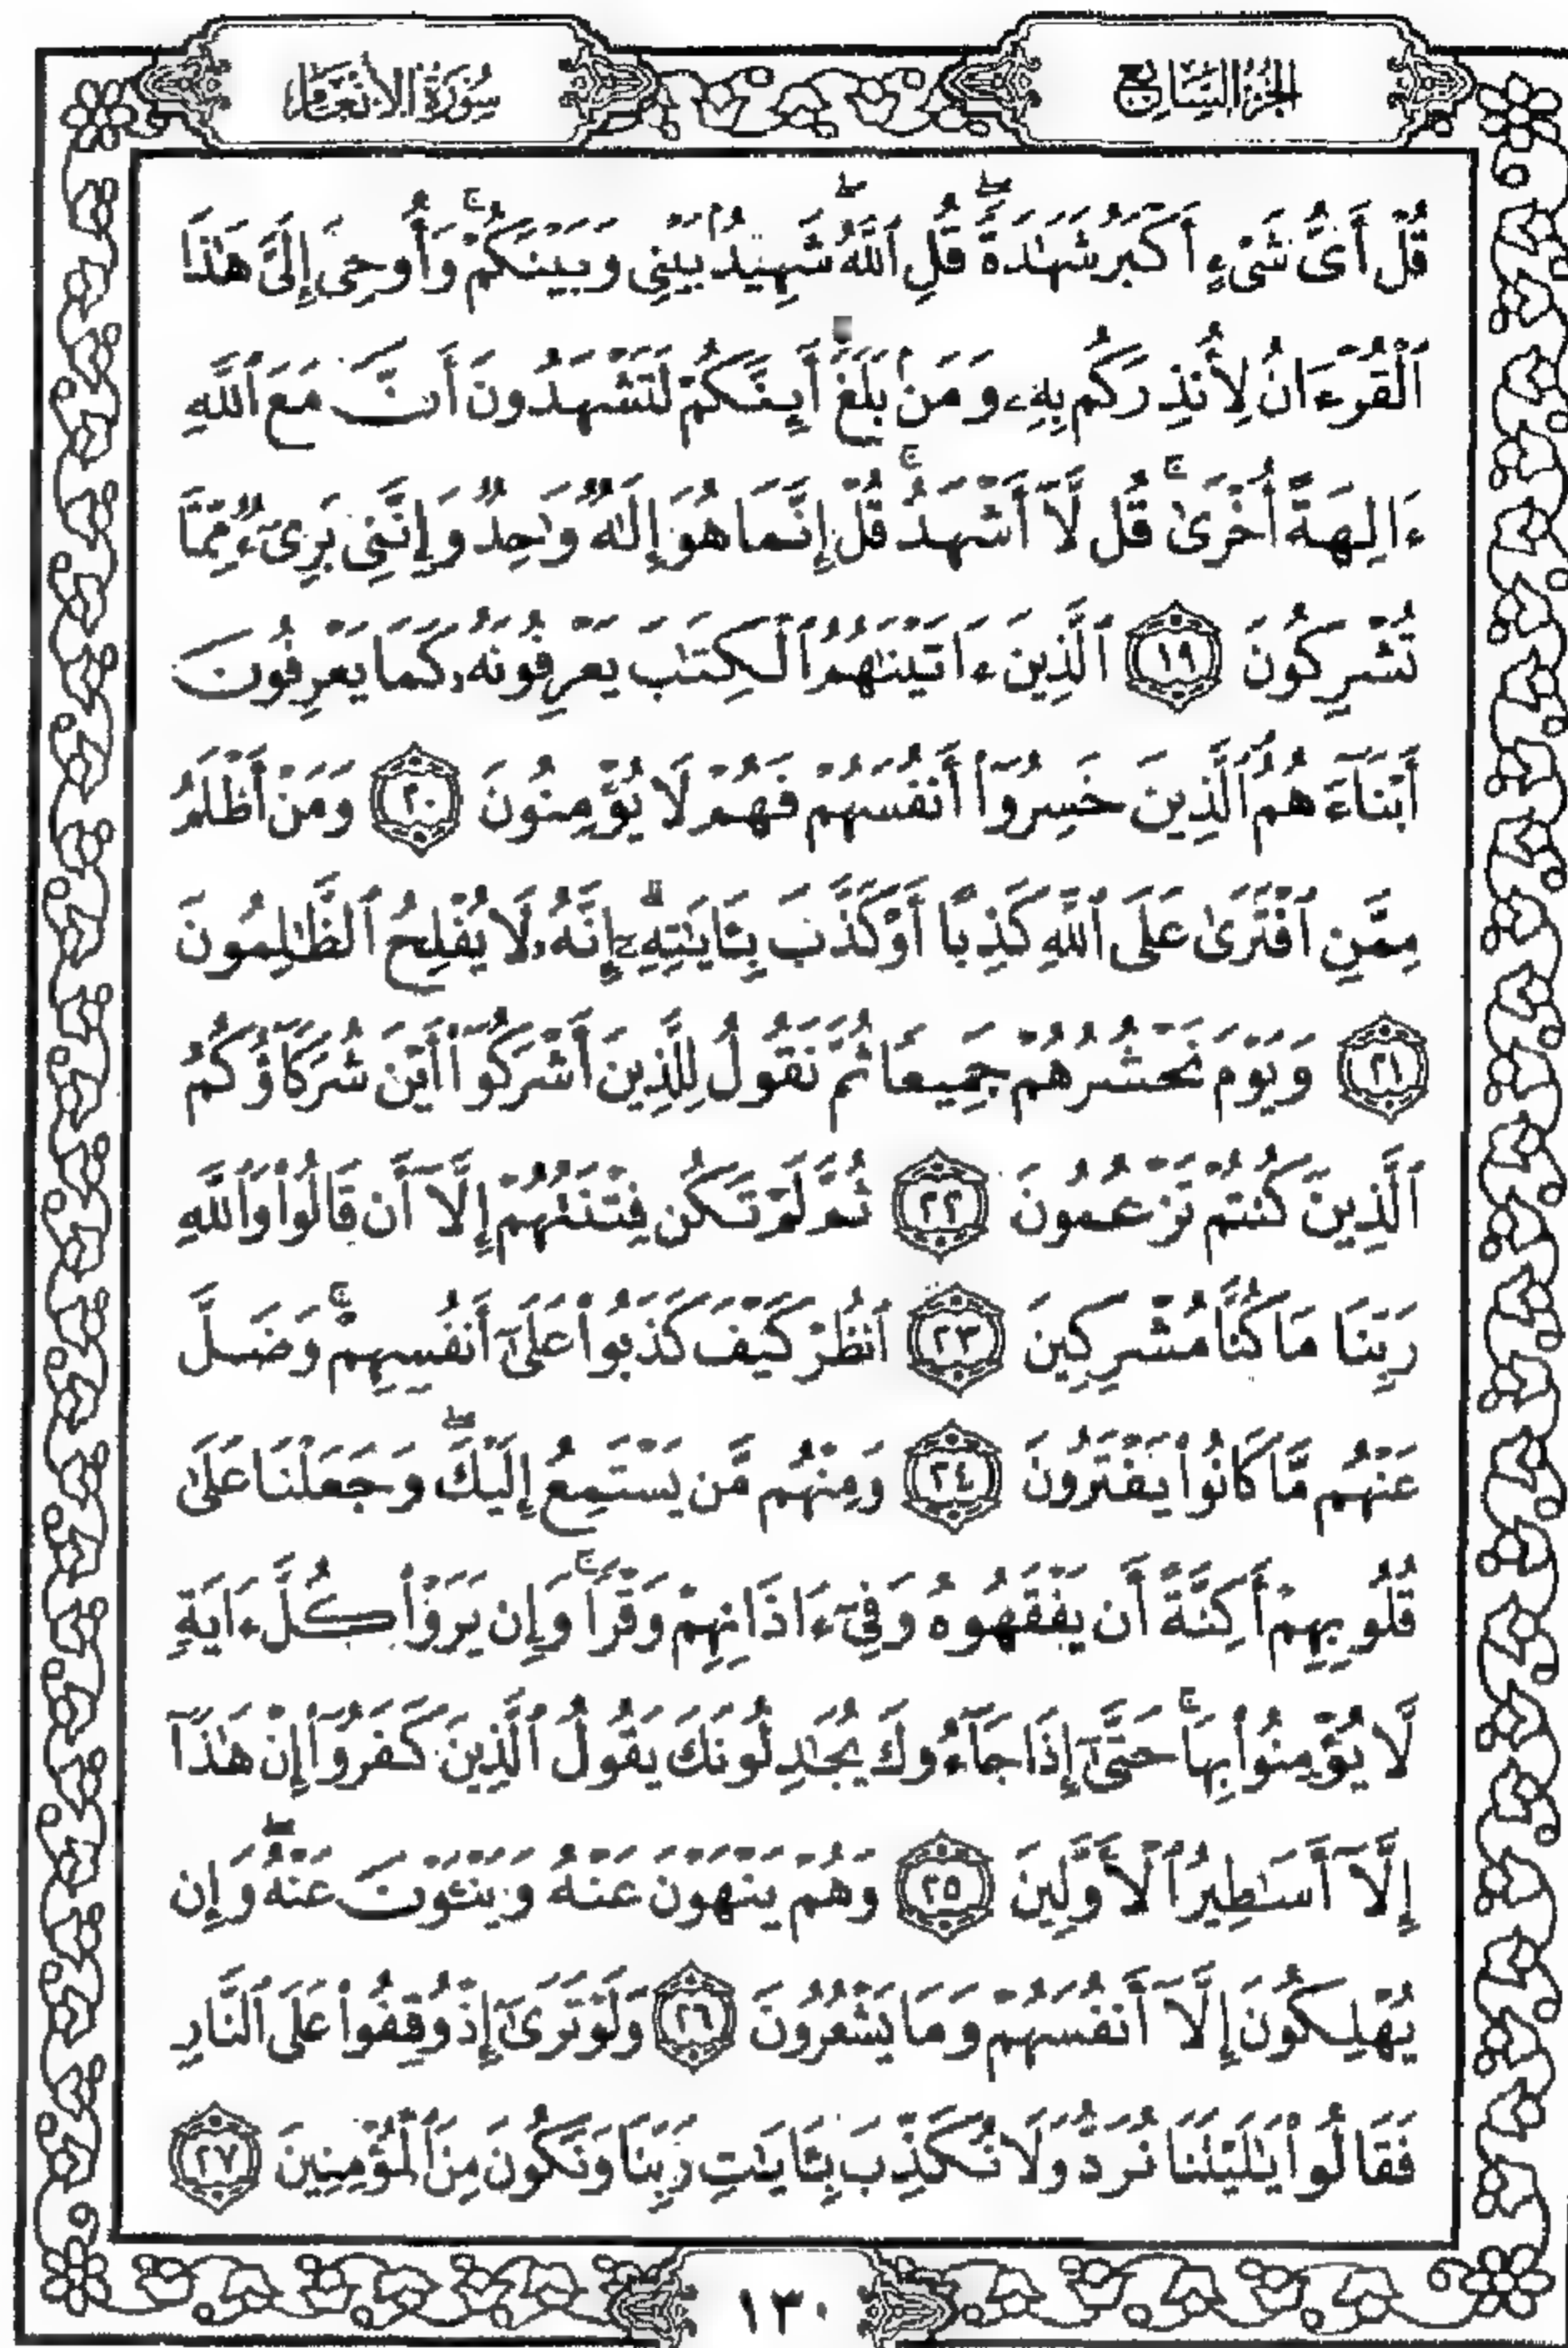 الجزء السابع
سورة الأنعام
قُلْ أَىُّ شَىْءٍ أَكْبَرُ شَهَٰدَةًۖ قُلِ ٱللَّهُۖ شَهِيدٌۢ بَيْنِى وَبَيْنَكُمْۚ وَأُوحِىَ إِلَىَّ هَٰذَا
ٱلْقُرْءَانُ لِأُنذِرَكُم بِهِۦ وَمَنۢ بَلَغَۚ أَئِنَّكُمْ لَتَشْهَدُونَ أَنَّ مَعَ ٱللَّهِ
ءَالِهَةً أُخْرَىٰۚ قُل لَّآ أَشْهَدُۚ قُلْ إِنَّمَا هُوَ إِلَٰهٌ وَٰحِدٌ وَإِنَّنِى بَرِىٓءٌ مِّمَّا
تُشْرِكُونَ ١٩ ٱلَّذِينَ ءَاتَيْنَٰهُمُ ٱلْكِتَٰبَ يَعْرِفُونَهُۥ كَمَا يَعْرِفُونَ
أَبْنَآءَهُمُ ٱلَّذِينَ خَسِرُوٓا۟ أَنفُسَهُمْ فَهُمْ لَا يُؤْمِنُونَ ٢٠ وَمَنْ أَظْلَمُ
مِمَّنِ ٱفْتَرَىٰ عَلَى ٱللَّهِ كَذِبًا أَوْ كَذَّبَ بِـَٔايَٰتِهِۦٓۗ إِنَّهُۥ لَا يُفْلِحُ ٱلظَّٰلِمُونَ
٢١ وَيَوْمَ نَحْشُرُهُمْ جَمِيعًا ثُمَّ نَقُولُ لِلَّذِينَ أَشْرَكُوٓا۟ أَيْنَ شُرَكَآؤُكُمُ
ٱلَّذِينَ كُنتُمْ تَزْعُمُونَ ٢٢ ثُمَّ لَمْ تَكُن فِتْنَتُهُمْ إِلَّآ أَن قَالُوا۟ وَٱللَّهِ
رَبِّنَا مَا كُنَّا مُشْرِكِينَ ٢٣ ٱنظُرْ كَيْفَ كَذَبُوا۟ عَلَىٰٓ أَنفُسِهِمْۚ وَضَلَّ
عَنْهُم مَّا كَانُوا۟ يَفْتَرُونَ ٢٤ وَمِنْهُم مَّن يَسْتَمِعُ إِلَيْكَۖ وَجَعَلْنَا عَلَىٰ
قُلُوبِهِمْ أَكِنَّةً أَن يَفْقَهُوهُ وَفِىٓ ءَاذَانِهِمْ وَقْرًاۚ وَإِن يَرَوْا۟ كُلَّ ءَايَةٍ
لَّا يُؤْمِنُوا۟ بِهَاۚ حَتَّىٰٓ إِذَا جَآءُوكَ يُجَٰدِلُونَكَ يَقُولُ ٱلَّذِينَ كَفَرُوٓا۟ إِنْ هَٰذَآ
إِلَّآ أَسَٰطِيرُ ٱلْأَوَّلِينَ ٢٥ وَهُمْ يَنْهَوْنَ عَنْهُ وَيَنْـَٔوْنَ عَنْهُۖ وَإِن
يُهْلِكُونَ إِلَّآ أَنفُسَهُمْ وَمَا يَشْعُرُونَ ٢٦ وَلَوْ تَرَىٰٓ إِذْ وُقِفُوا۟ عَلَى ٱلنَّارِ
فَقَالُوا۟ يَٰلَيْتَنَا نُرَدُّ وَلَا نُكَذِّبَ بِـَٔايَٰتِ رَبِّنَا وَنَكُونَ مِنَ ٱلْمُؤْمِنِينَ ٢٧
١٣٠